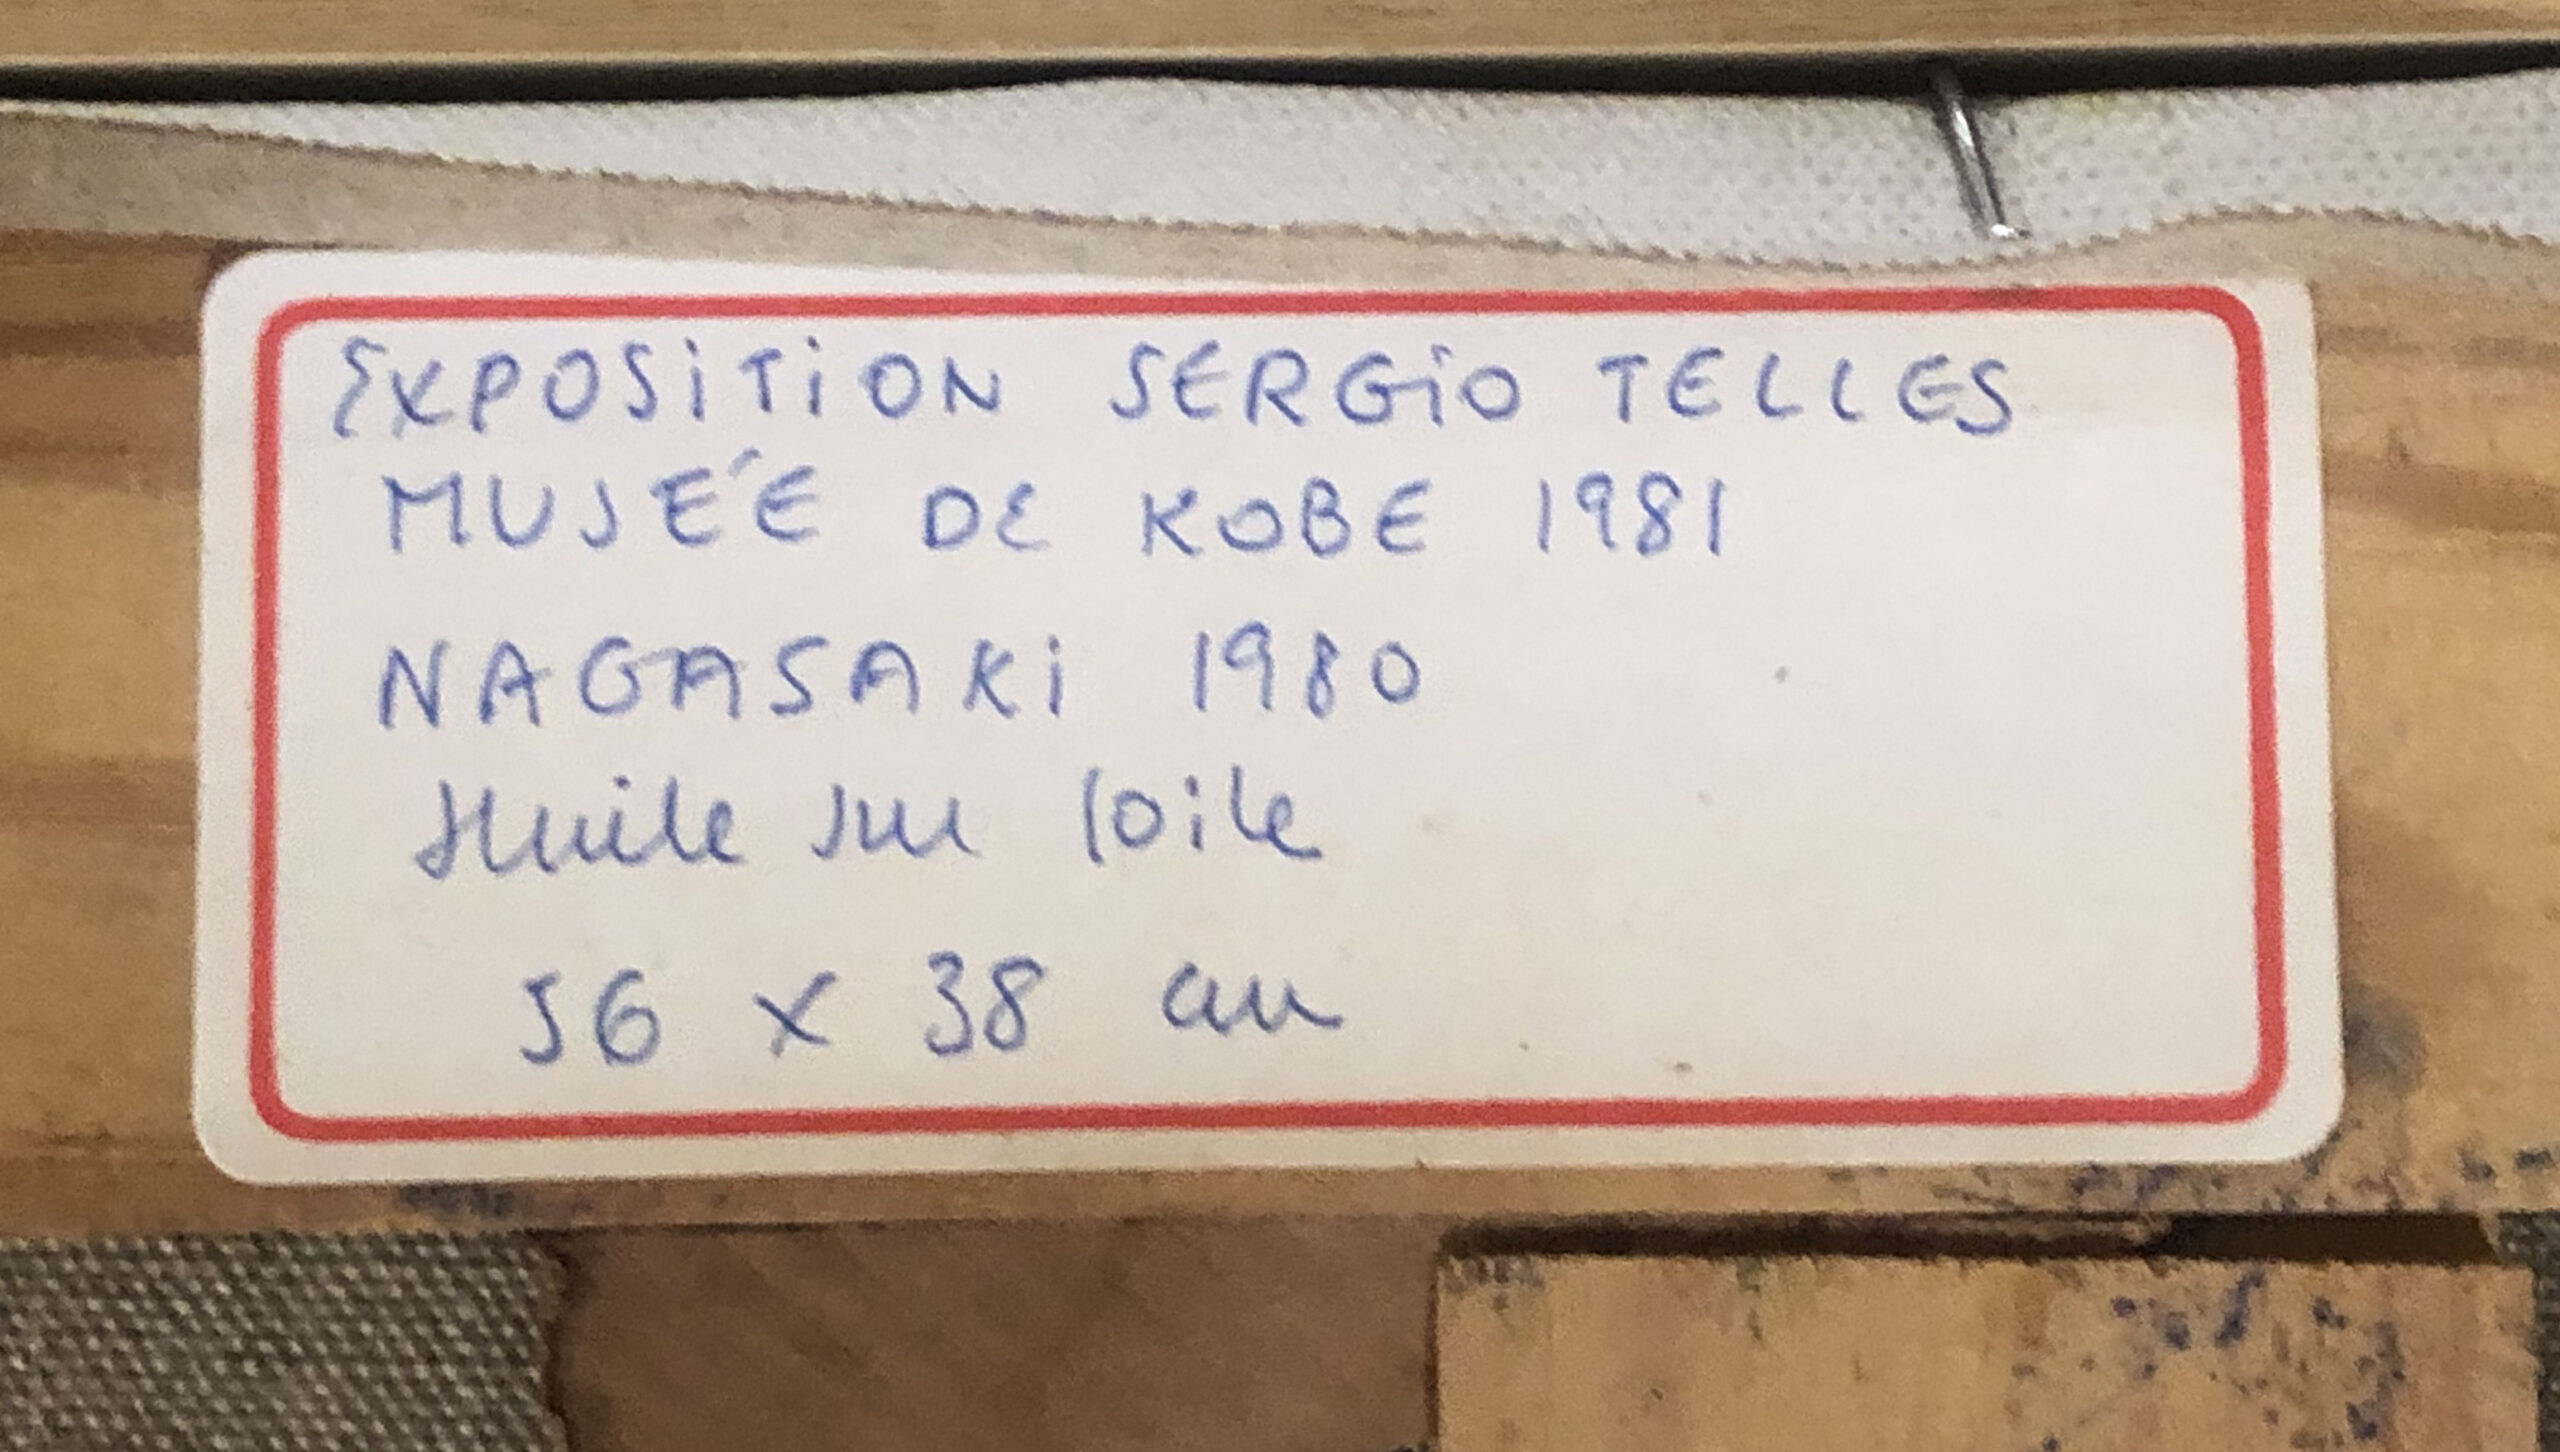 EXPOSITION SERGIO TELLES
MUSÉE DE KOBE 1981
NAGASAKI 1980
Huile sur toile
56 x 38 cm